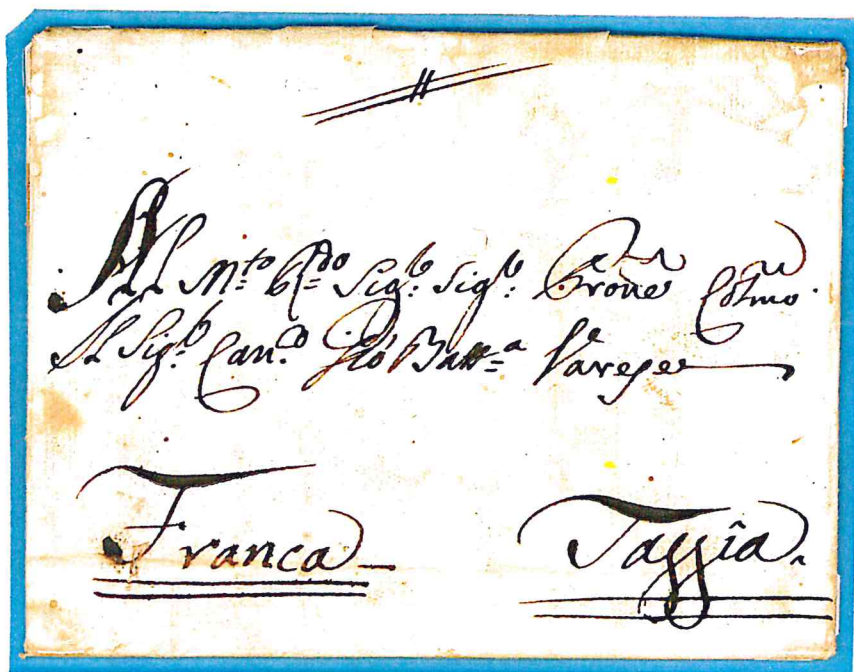 All M.to R.do Sig.r Sig.r Prone Colmo.
Il Sig.r Can.co Gio Batt.a Varese
Franca
Taggia.